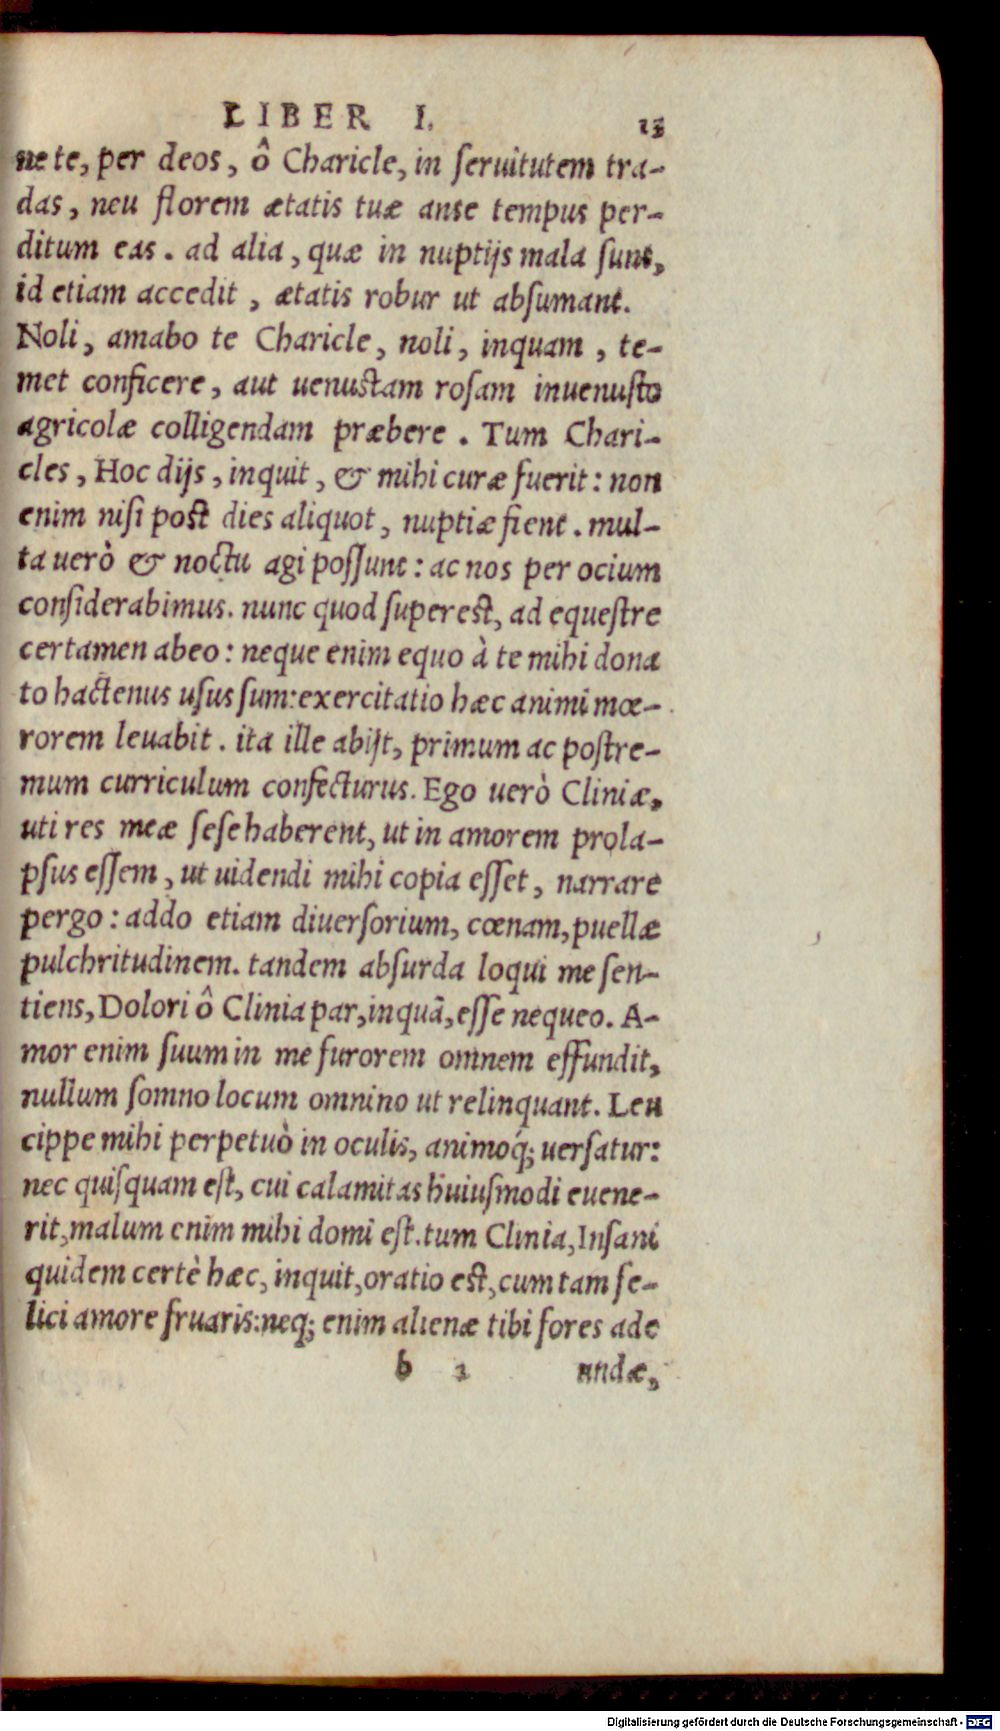 LIBER I. 13
ne te, per deos, ô Charicle, in ſeruitutem tra-
das, neu florem ætatis tuæ ante tempus per-
ditum eas. ad alia, quæ in nuptijs mala ſunt,
id etiam accedit, ætatis robur ut abſumant.
Noli, amabo te Charicle, noli, inquam, te-
met conficere, aut uenuſtam roſam inuenuſto
agricolæ colligendam præbere. Tum Chari-
cles, Hoc dijs, inquit, & mihi curæ fuerit: non
enim niſi poſt dies aliquot, nuptiæ fient. mul-
ta uerò & noctu agi poſſunt: ac nos per ocium
conſiderabimus. nunc quod ſupereſt, ad equeſtre
certamen abeo: neque enim equo à te mihi dona
to hactenus uſus ſum: exercitatio hæc animi mœ-
rorem leuabit. ita ille abijt, primum ac poſtre-
mum curriculum confecturus. Ego uerò Cliniæ,
uti res meæ ſeſe haberent, ut in amorem prola-
pſus eſſem, ut uidendi mihi copia eſſet, narrare
pergo: addo etiam diuerſorium, cœnam, puellæ
pulchritudinem. tandem abſurda loqui me ſen-
tiens, Dolori ô Clinia par, inquã, eſſe nequeo. A-
mor enim ſuum in me furorem omnem effundit,
nullum ſomno locum omnino ut relinquant. Leu
cippe mihi perpetuò in oculis, animoq́; uerſatur:
nec quiſquam eſt, cui calamitas huiuſmodi euene-
rit, malum enim mihi domi eſt. tum Clinia, Inſani
quidem certè hæc, inquit, oratio eſt, cum tam fe-
lici amore fruaris: neq; enim alienæ tibi fores ade
b 3 undæ,
Digitalisierung gefördert durch die Deutsche Forschungsgemeinschaft - DFG